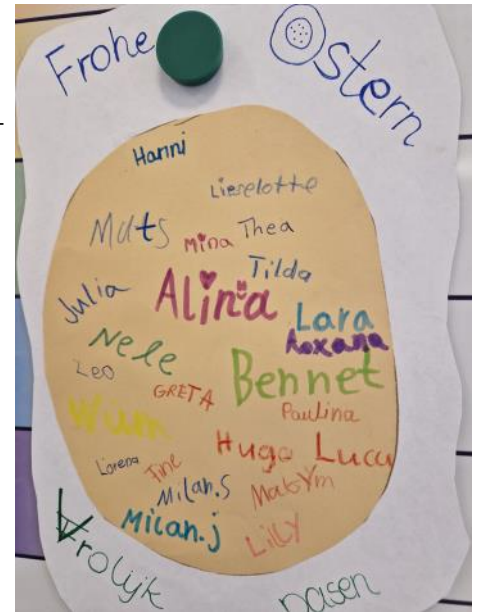 Frohe Ostern
Hanni
Lieselotte
Mats
Mina Thea
Tilda
Julia Alina
Lara
Roxana
Nele
Leo Bennet
GRETA
Paulina
Wim
Hugo Luca
Lorena Tine
Milan.S
Milan.j
Lilly
Vrolijk pasen